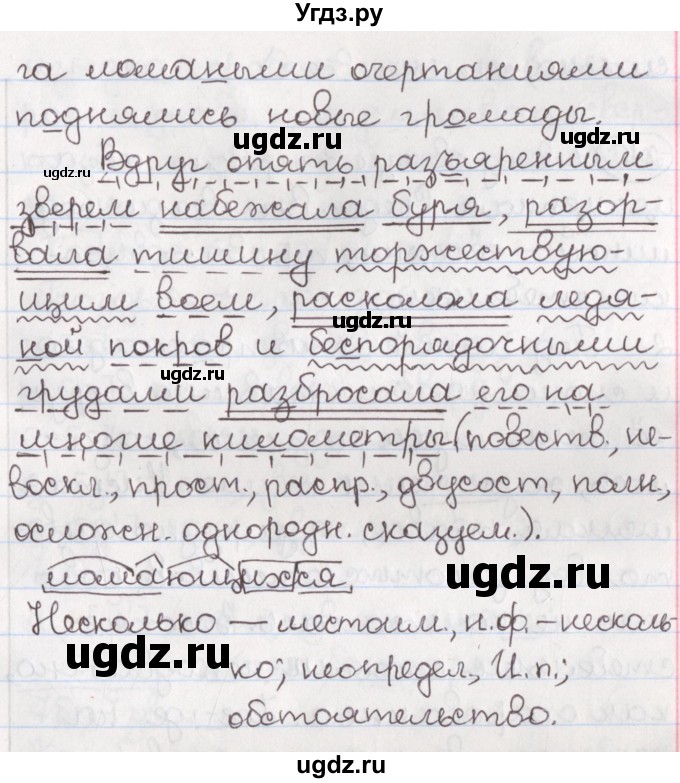 Угдз.ру
га ломаными очертаниями
поднялись новые громады.
ugdz.ru
ugdz.ru
Вдруг опять разъяренным
ugdz.ru
зверем набежала буря, разор-
вала тишину торжествую-
щим воем, расколола ледя-
ugdz.ru
ной покров и беспорядочными
ugdz.ru
грудами разбросала его на
многие километры (повеств., не-
воскл., прост., распр., двусост., полн.,
осложн. однородн. сказуем.).
ломающихся
ugdz.ru
Несколько – местоим., н.ф. – несколь-
ugdz.ru
ко; неопредел., И.п.;
обстоятельство.
ugdz.ru
ugdz.ru